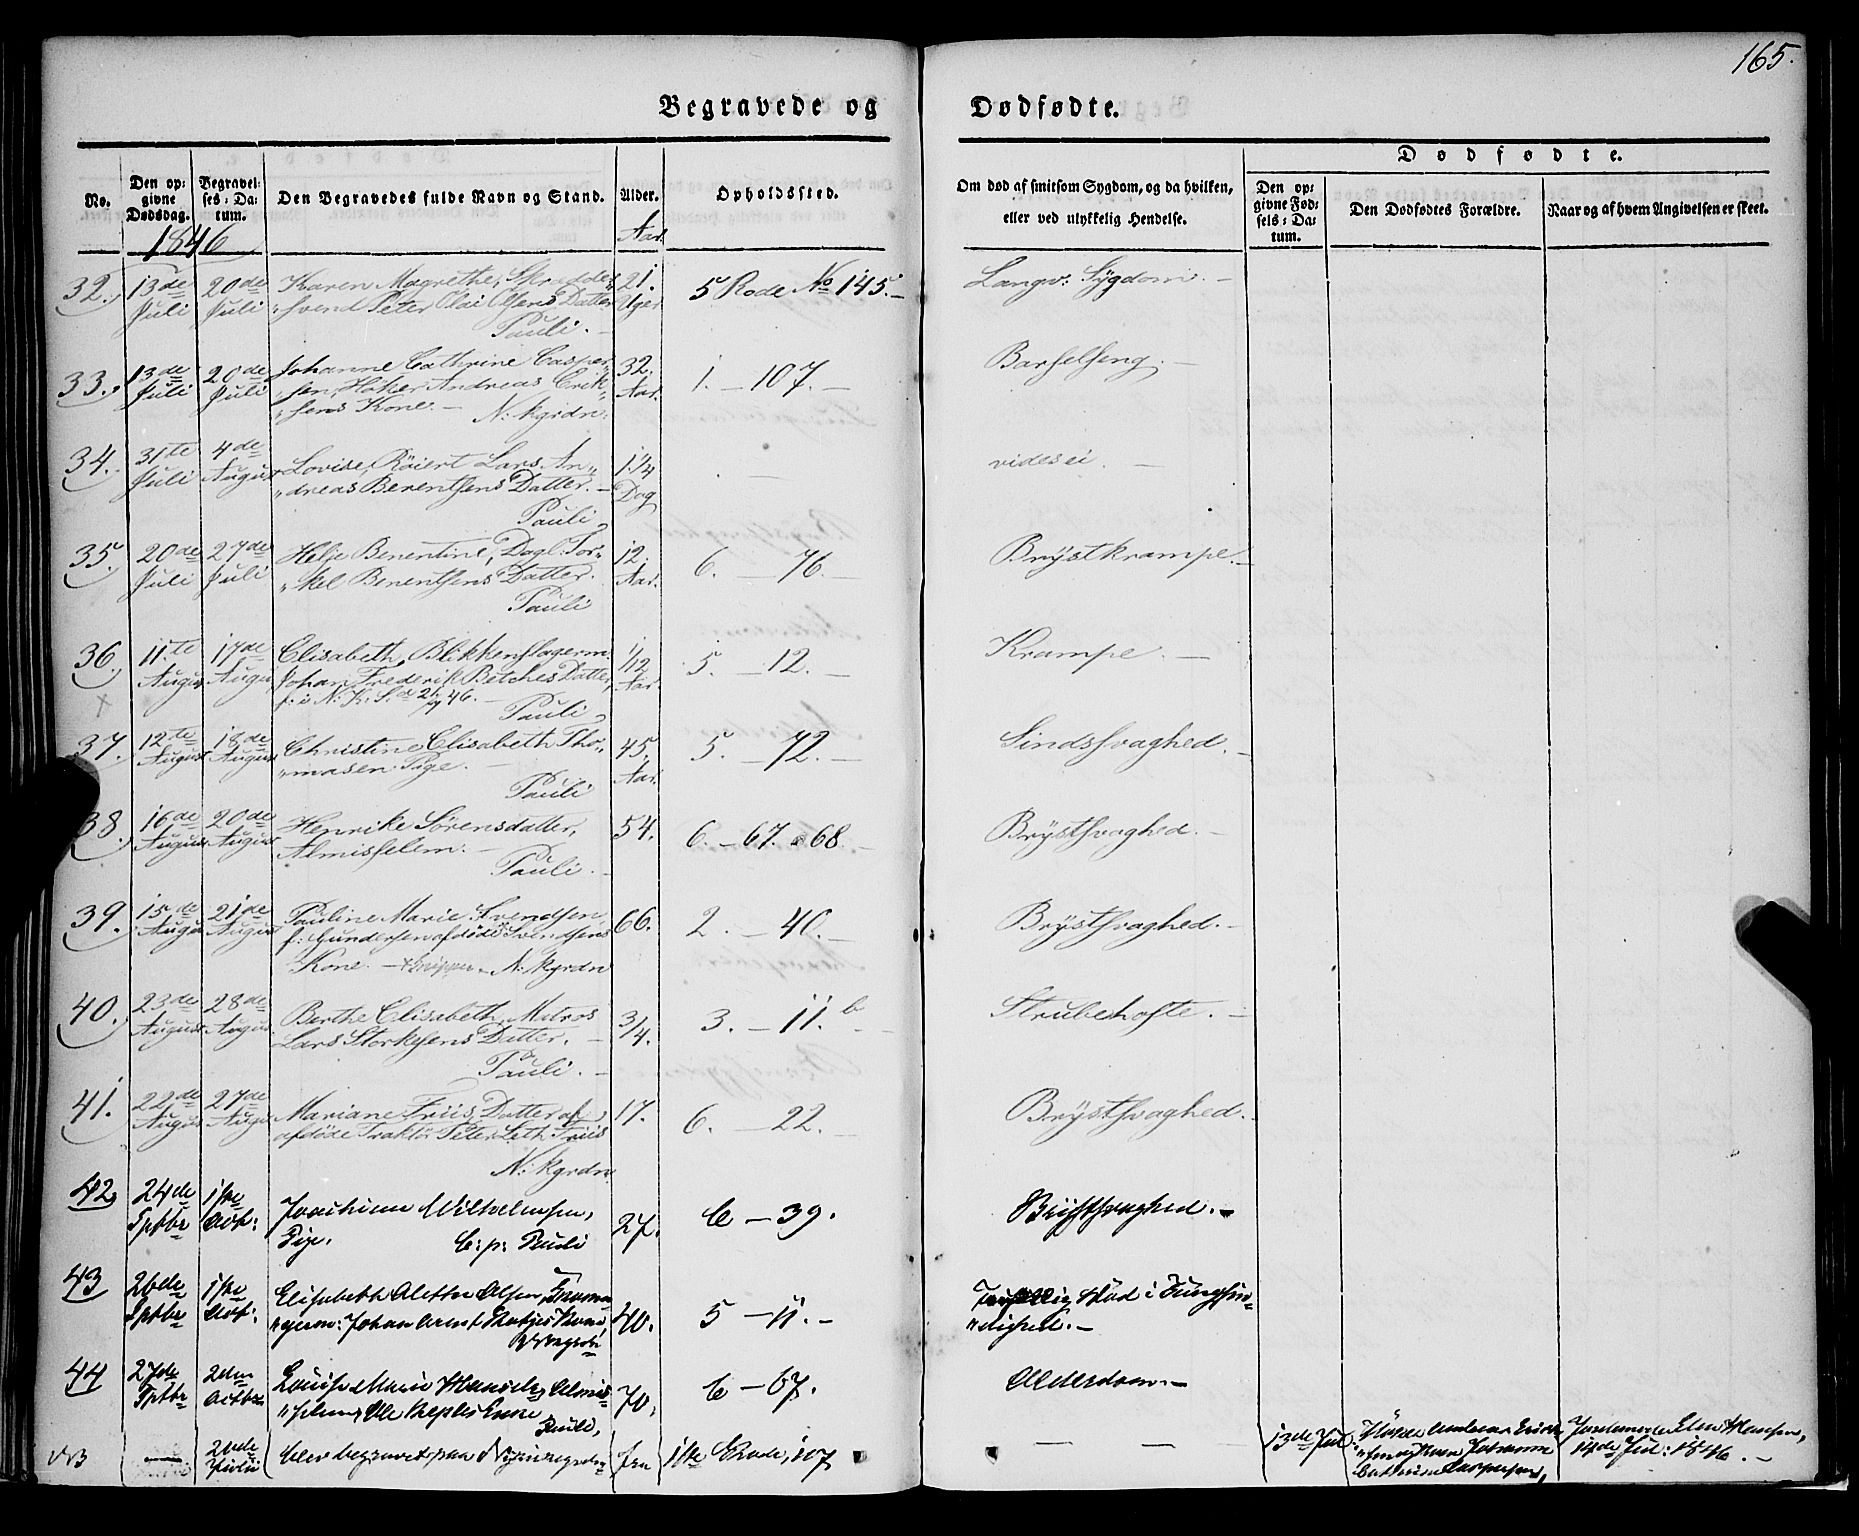 165.
Begravede og Dødfødte.
No.
Den opgivne Dødsdag.
Begravelses-Datum.
Den Begravedes fulde Navn og Stand.
Alder.
Opholdssted.
Om død af smitsom Sygdom, og da hvilken,
eller ved ulykkelig Hendelse.
Dødfødte.
Den opgivne Fødsels-Datum.
Den Dødfødtes Forældre.
Naar og af hvem Angivelsen er skeet.
1846
Aar.
32. 13de Juli 20de Juli
Karen Magrethe, Skrædder
svend Peter Olai Olsens Datter
Pauli.
21. Uger 5 Rode No 145. Langv: Sygdom.
33. 13de Juli 20de Juli
Johanne Cathrine Casper
sen, Høker Andreas Erik
sens Kone. N: kgrdn.
32. Aar. 1. 107. Barselseng.
34. 31te Juli 4de August
Lovise, Røiert Lars An
dreas Berentsens Datter.
Pauli
1 1/4 Dag
vides ei.
35. 20de Juli 27de Juli
Helje Berentine, Dagl: Tor
kel Berentsens Datter.
Pauli
12. Aar. 6. 76. Brystkrampe.
36. 11.te August 17de August
Elisabeth, Blikkenslagerm.
Johan Frederik Betches Datter,
Pauli
1/12 Aar. 5. 12. Krampe.
37. 12te August 18de August
Christine Elisabeth Tho
masen Pige.
Pauli
45. Aar. 5. 72. Sindssvaghed.
38. 16de August 20de August
Henrike Sørensdatter,
Almisselem.
Pauli.
54. 6. 67. a 68. Brystsvaghed.
39. 15de August 21de August
Pauline Marie Svendsen,
f: Gundersen afdøde Svendsens
Kone. N: kgrdn
66. 2. 40. Brystsvaghed.
40. 23de August 28de August
Berthe Elisabeth, Matros
Lars Storkesens Datter.
Pauli.
3/4. 3. 11.b Strubehoste.
41. 22de August 27de August
Mariane Friis, Datter af
afdøde Traktør Peter Leth Friis
N: kgrdn
17. 6. 22. Brystsvaghed.
42 24de Sptbr 1ste Oct:
Joachime Wilhelmsen,
Pige. C: p: Pauli
27. 6 39. Brystsvaghed.
43 26de Sptbr 1ste Oct:
Elisabeth Alette Olsen,
Johan Arnt Kone,
40. 5 11.
Stød i
44 27de Sptbr 2den Octbr
Louise Marie Almis
Ole Enke
Pauli,
70. 6 67. Alderdom.
NB 20de Juli
blev begravet paa
fra 1ste Rode, 107
13de Jul
Høker Andreas Erik
sen og Kone Johanne
Cathrine Caspersen,
Jordemoder Elen Hansen,
Jul: 1846.